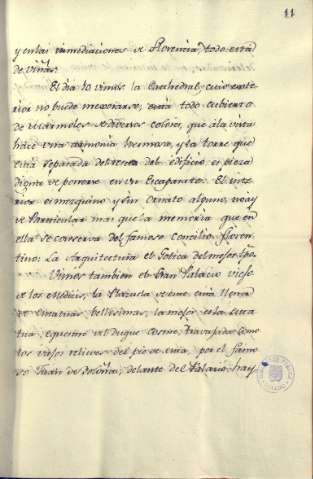 11
y en las inmediaciones de Florencia, todo està
de viñas.
El dia 10 vimos la Cathedral, cuio exte
rior no puede mejorarse, està todo cubierto
de marmoles de diversos colores, que à la vista
hace una armonia hermosa, y la torre que
està separada del resto del edificio es pieza
digna de ponerse en un Escaparate. El inte
rior es mezquino y sin ornato alguno, no ay
de Particular mas que la memoria que en
ella se conserva del famoso Concilio Floren
tino: La Arquitectura es Gotica del mejor tpo.
Vimos tambien el Gran Palacio viejo
de los Medicis, la Plazuela de este està llena
de Estatuas bellissimas, la mejor es la esta
tua equestre del Duque Cosme, travajada como
los vajos relieves del pie de ella, por el famo
so Juan de Bolonia, delante del Palacio hay